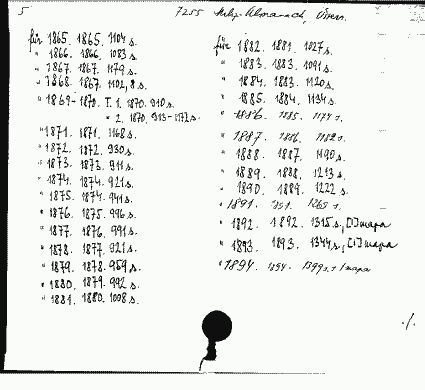 5 7255 Milit. Almanach, Österr.
für 1865. 1865. 1104 s.
" 1866. 1866. 1083 s.
" 1867. 1867. 1179 s.
" 1868. 1867. 1102, 8 s.
" 1869-1870. T. 1. 1870. 910 s.
" 2. 1870. 913-1172 s.
" 1871. 1871. 1168 s.
" 1872. 1872. 930 s.
" 1873. 1873. 911 s.
" 1874. 1874. 921 s.
" 1875. 1874. 941 s.
" 1876. 1875. 996 s.
" 1877. 1876. 991 s.
" 1878. 1877. 921 s.
" 1879. 1878. 959 s.
" 1880. 1879. 992 s.
" 1881. 1880. 1008 s.
für 1882. 1881. 1027 s.
" 1883. 1883. 1091 s.
" 1884. 1883. 1120 s.
" 1885. 1884. 1134 s.
" 1886. 1885. 1174 s.
" 1887. 1886. 1182 s.
" 1888. 1887. 1190 s.
" 1889. 1888. 1213 s.
" 1890. 1889. 1222 s.
" 1891. 1891. 1265 s.
" 1892. 1892. 1315 s., [1] mapa
" 1893. 1893. 1344 s., [1] mapa
" 1894. 1894. 1399 s. 1 mapa
./.